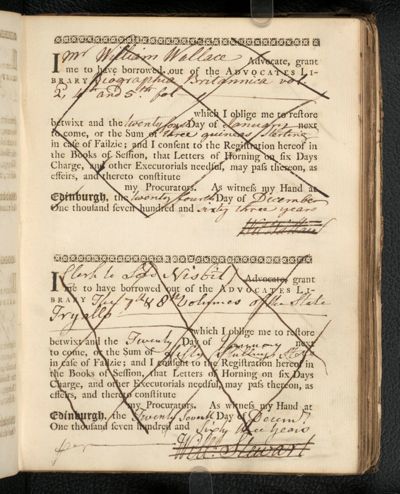 I Mr William Wallace Advocate, grant
me to have borrowed out of the ADVOCATES LI-
BRARY Biographia Britannica vol
2, 4th and 5th fol
which I oblige me to restore
betwixt and the twenty fourth Day of January next
to come, or the Sum of three guineas Sterling
in case of Failzie; and I consent to the Registration hereof in
the Books of Session, that Letters of Horning on six Days
Charge, and other Executorials needful, may pass thereon, as
effeirs, and thereto constitute
my Procurators. As witness my Hand at
Edinburgh, the twenty fourth Day of December
One thousand seven hundred and sixty three years
I Clerk to Lord Nisbit Advocate, grant
me to have borrowed out of the ADVOCATES LI-
BRARY The 7th & 8th Volumes of the State
Tryalls
which I oblige me to restore
betwixt and the Twenty Day of January next
to come, or the Sum of fifty Shillings
in case of Failzie; and I consent to the Registration hereof in
the Books of Session, that Letters of Horning on six Days
Charge, and other Executorials needful, may pass thereon, as
effeirs, and thereto constitute
my Procurators. As witness my Hand at
Edinburgh, the Twenty Seventh Day of Decemr
One thousand seven hundred and Sixty three years
Will: Stewart